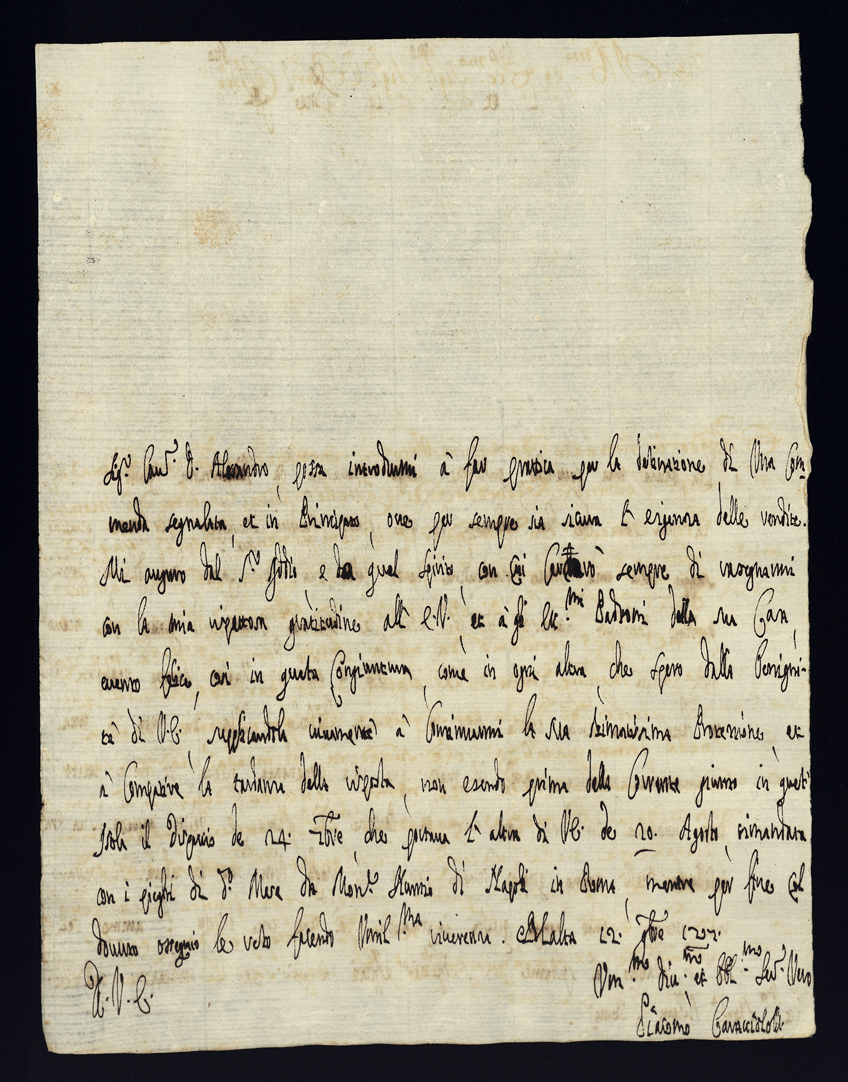 Sig.r Cau.r D. Alesandro, possa introdurmi à far prattica per la destinazione di Una Com-
menda segnalata, et in Principato, oue per sempre sia sicura l'esigenza delle rendite.
Mi auguro dal S.r Iddio, e da qual spirito, con Cui sempre di rasegnarmi
con la mia rispettosa gratitudine all'E.V., et à gli Ecc.mi Padroni della sua Casa,
euento felice, così in questa Congiuntura, come in ogni altra, che spero dalla Benigni-
tà di V.E., supplicandola uiuamente à Continuarmi la sua stimatissima Protezzione, et
à Compatire la tardanza della risposta, non esendo prima della Corrente giunto in questa
Isola il Dispaccio de 24. 7bre, che portaua l'altra di V.E. de 20. Agosto, rimandata
con i pieghi di d.o Mese da Mons.r Nunzio di Napoli in Roma, mentre per fine col
douuto ossequio le resto facendo Umil.ma riuerenza. Malta 12. 9bre 1727.
D. V. E.
Um.mo diu.mo et Obl.mo Ser.r Vero
Giacomo Caracciolo